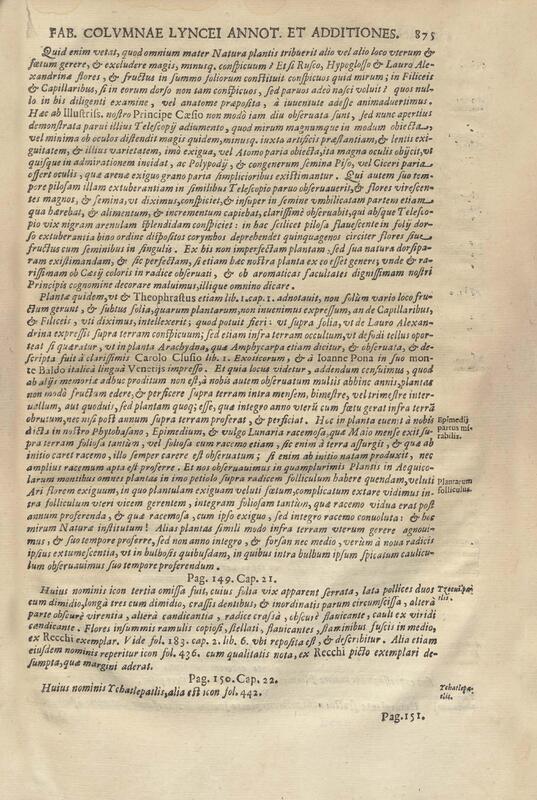 FAB. COLVMNAE LYNCEI ANNOT. ET ADDITIONES. 875
Quid enim vetat, quod omnium mater Natura plantis tribuerit alio vel alio loco vterum &
fœtum gerere, & excludere magis, minusq. conspicuum? Et si Rusco, Hypoglosso & Lauro Ale-
xandrina flores, & fructus in summo foliorum constituit conspicuos quid mirum; in Filiceis
& Capillaribus, si in eorum dorso non tam conspicuos, sed paruos adeò nasci voluit? quos nul-
lo in his diligenti examine, vel anatome præposita, à iuuentute adesse animaduertimus.
Hæc ab Illustriss. nostro Principe Cæsio non modò tam diu obseruata sunt, sed nunc apertius
demonstrata parui illius Telescopij adiumento, quod mirum magnumque in modum obiecta,
vel minima ob oculos distendit magis quidem, minusq. iuxta artificis præstantiam, & lentis exi-
guitatem, & illius varietatem, imò exigua, vel Atomo paria obiecta, ita magna oculit obijcit, vt
quisque in admirationem incidat, ac Polypodij, & congenerum semina Piso, vel Ciceri paria
offert oculis, quæ arenæ exiguo grano paria simplicioribus existimantur. Qui autem suo tem-
pore pilosam illam extuberantiam in similibus Telescopio paruo obseruauerit, & flores virescen-
tes magnos, & semina, vt diximus, conspiciet, & insuper in semine vmbilicatam partem etiam
qua hærebat, & alimentum, & incrementum capiebat, clarissimè obseruabit, qui absque Telesco-
pio vix nigram arenulam splendidam conspiciet: in hac scilicet pilosa flauescente in folij dor-
so extuberantia bino ordine dispositos corymbos deprehendet quinquagenos circiter flores siue
fructus cum seminibus in singulis. Ex his non imperfectam plantam, sed sua natura dorsipa-
ram existimandam, & sic perfectam, si etiam hæc nostra planta ex eo esset genere, vnde & ra-
rissimam ob Cæsij coloris in radice obseruati, & ob aromaticas facultates dignissimam nostri
Principis cognomine decorare maluimus, illique omnino dicare.
Plantæ quidem, vt & Theophrastus etiam lib. 1. cap. 1. adnotauit, non solùm vario loco fru-
ctum gerunt, & subtus folia, quarum plantarum, non inuenimus expressum, an de Capillaribus,
& Filiceis, vti diximus, intellexerit; quod potuit fieri: vt supra folia, vt de Lauro Alexan-
drina expressit supra terram conspicuum; sed etiam infra terram occultum, vt defodi tellus opor-
teat si quæratur, vt in planta Arachydna, quæ Amphycarpa etiam dicitur, & obseruata, & de-
scripta fuit à clarissimis Carolo Clusio lib. 1. Exoticorum, & à Ioanne Pona in suo mon-
te Baldo italica lingua Venetijs impresso. Et quia locus videtur, addendum censuimus, quod
ab alijs memoriæ adhuc proditum non est, à nobis autem obseruatum multis abhinc annis, plantas
non modò fructum edere, & perficere supra terram intra mensem, bimestre, vel trimestre inter-
uallum, aut quoduis, sed plantam quoq; esse, quæ integro anno vterũ cum fœtu gerat infra terrã
obrutum, nec nisi post annum supra terram proferat, & perficiat. Hoc in planta euenit à nobis
dicta in nostro Phytobasano, Epimedium, & vulgo Lunaria racemosa, quæ Maio mense exit su-
pra terram foliosa tantùm, vel foliosa cum racemo etiam, sic enim è terra assurgit, & quæ ab
initio caret racemo, illo semper carere est obseruatum; si enim ab initio natam produxit, nec
amplius racemum apta est proferre. Et nos obseruauimus in quamplurimis Plantis in Aequico-
larum montibus omnes plantas in imo petiolo supra radicem folliculum habere quendam, veluti
Ari florem exiguum, in quo plantulam exiguam veluti fœtum, complicatum extare vidimus in-
tra folliculum vteri vicem gerentem, integram foliosam tantùm, quæ racemo vidua erat post
annum proferenda, & quæ racemosa, cum ipso exiguo, sed integro racemo conuoluta: & hoc
mirum Naturæ institutum! Alias plantas simili modo infra terram vterum gerere agnoui-
mus, & suo tempore proferre, sed non anno integro, & forsan nec medio, verùm à noua radicis
ipsius extumescentia, vt in bulbosis quibusdam, in quibus intra bulbum ipsum spicatum caulicu-
lum obseruauimus suo tempore proferendum.
Epimedij
partus mi-
rabilis.
Plantarum
folliculus.
Pag. 149. Cap. 21.
Huius nominis icon tertia omissa fuit, cuius folia vix apparent serrata, lata pollices duos
cum dimidio, longa tres cum dimidio, crassis dentibus, & inordinatis parum circumscissa, altera
parte obscurè virentia, altera candicantia, radice crassa, obscurè flauicante, cauli ex viridi
candicante. Flores insummis ramulis copiosi, stellati, flauicantes, staminibus fuscis in medio,
ex Recchi exemplari. Vide fol. 183. cap. 2. lib. 6. vbi reposita est, & describitur. Alia etiam
eiusdem nominis reperitur icon fol. 436. cum qualitatis nota, ex Recchi picto exemplari de-
sumpta, quæ margini aderat.
Pag. 150. Cap. 22.
Huius nominis Ychatlepatlis, alia est icon fol. 442.
Pag. 151.